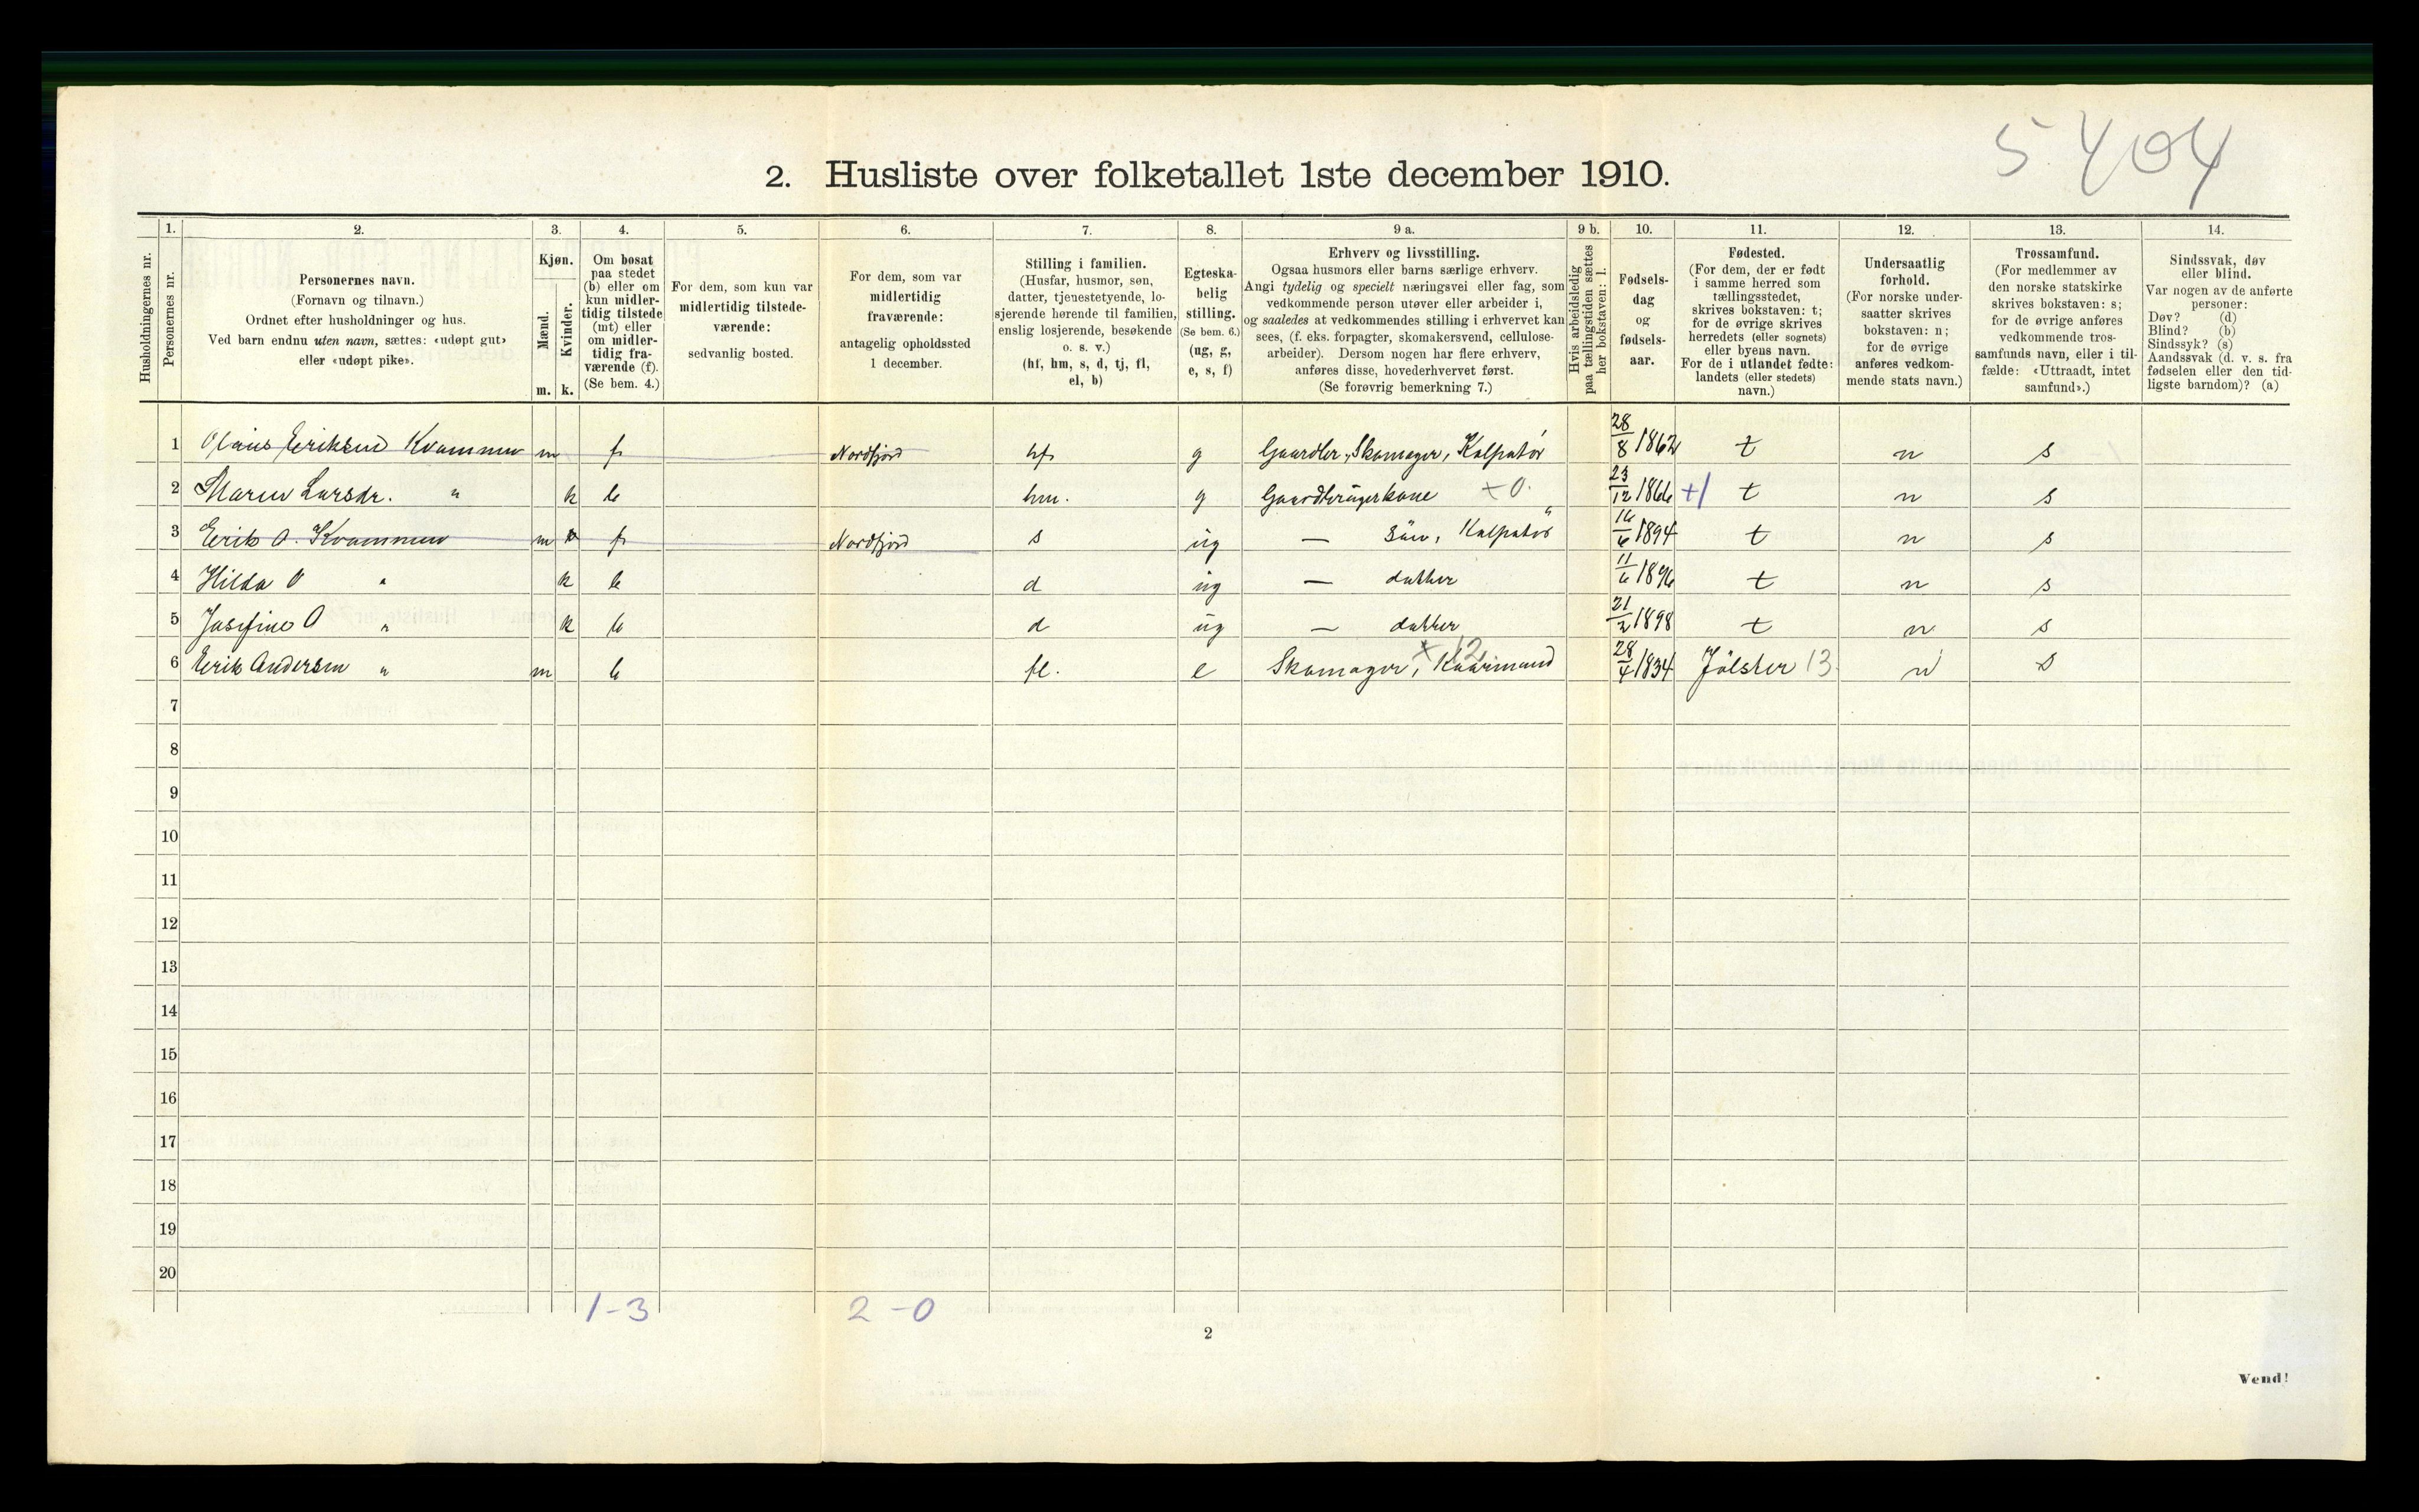 5404
2. Husliste over folketallet 1ste december 1910.
Husholdningernes nr.
1. Personernes nr.
2. Personernes navn.
(Fornavn og tilnavn.)
Ordnet efter husholdninger og hus.
Ved barn endnu uten navn, sættes: «udøpt gut»
eller «udøpt pike».
3. Kjøn.
Mænd. m.
Kvinder. k.
4. Om bosat
paa stedet
(b) eller om
kun midler-
tidig tilstede
(mt) eller
om midler-
tidig fra-
værende (f).
(Se bem. 4.)
5. For dem, som kun var
midlertidig tilstede-
værende:
sedvanlig bosted.
6. For dem, som var
midlertidig
fraværende:
antagelig opholdssted
1 december.
7. Stilling i familien.
(Husfar, husmor, søn,
datter, tjenestetyende, lo-
sjerende hørende til familien,
enslig losjerende, besøkende
o. s. v.)
(hf, hm, s, d, tj, fl,
el, b)
8. Egteska-
belig
stilling.
(Se bem. 6.)
(ug, g,
e, s, f)
9 a. Erhverv og livsstilling.
Ogsaa husmors eller barns særlige erhverv.
Angi tydelig og specielt næringsvei eller fag, som
vedkommende person utøver eller arbeider i,
og saaledes at vedkommendes stilling i erhvervet kan
sees, (f. eks. forpagter, skomakersvend, cellulose-
arbeider). Dersom nogen har flere erhverv,
anføres disse, hovederhvervet først.
(Se forøvrig bemerkning 7.)
9 b. Hvis arbeidsledig
paa tællingstiden sættes
her bokstaven: l.
10. Fødsels-
dag
og
fødsels-
aar.
11. Fødested.
(For dem, der er født
i samme herred som
tællingsstedet,
skrives bokstaven: t;
for de øvrige skrives
herredets (eller sognets)
eller byens navn.
For de i utlandet fødte:
landets (eller stedets)
navn.)
12. Undersaatlig
forhold.
(For norske under-
saatter skrives
bokstaven: n;
for de øvrige
anføres vedkom-
mende stats navn.)
13. Trossamfund.
(For medlemmer av
den norske statskirke
skrives bokstaven: s;
for de øvrige anføres
vedkommende tros-
samfunds navn, eller i til-
fælde: «Uttraadt, intet
samfund».)
14. Sindssvak, døv
eller blind.
Var nogen av de anførte
personer:
Døv? (d)
Blind? (b)
Sindssyk? (s)
Aandssvak (d. v. s. fra
fødselen eller den tid-
ligste barndom)? (a)
1 Olaius Eriksen Kvammen m f Nordfjord hf g Gaardbr, Skomager, Kolpatør 28/8 1862 t n s
2 Maren Larsdr. " k b hm. g Gaardbrugerkone +0. 23/12 1866 +1 t n s
3 Erik O. Kvammen m f Nordfjord s ug — søn, Kolpatør 16/6 1894 t n s
4 Hilda O " k b d ug — datter 11/6 1896 t n s
5 Josefine O " k b d ug — datter 21/2 1898 t n s
6 Erik Andersen " m b fl. e Skomager, Kaarmand + 12 28/4 1834 Jölster 13 n s
7
8
9
10
11
12
13
14
15
16
17
18
19
20
1-3 2-0
2
Vend!